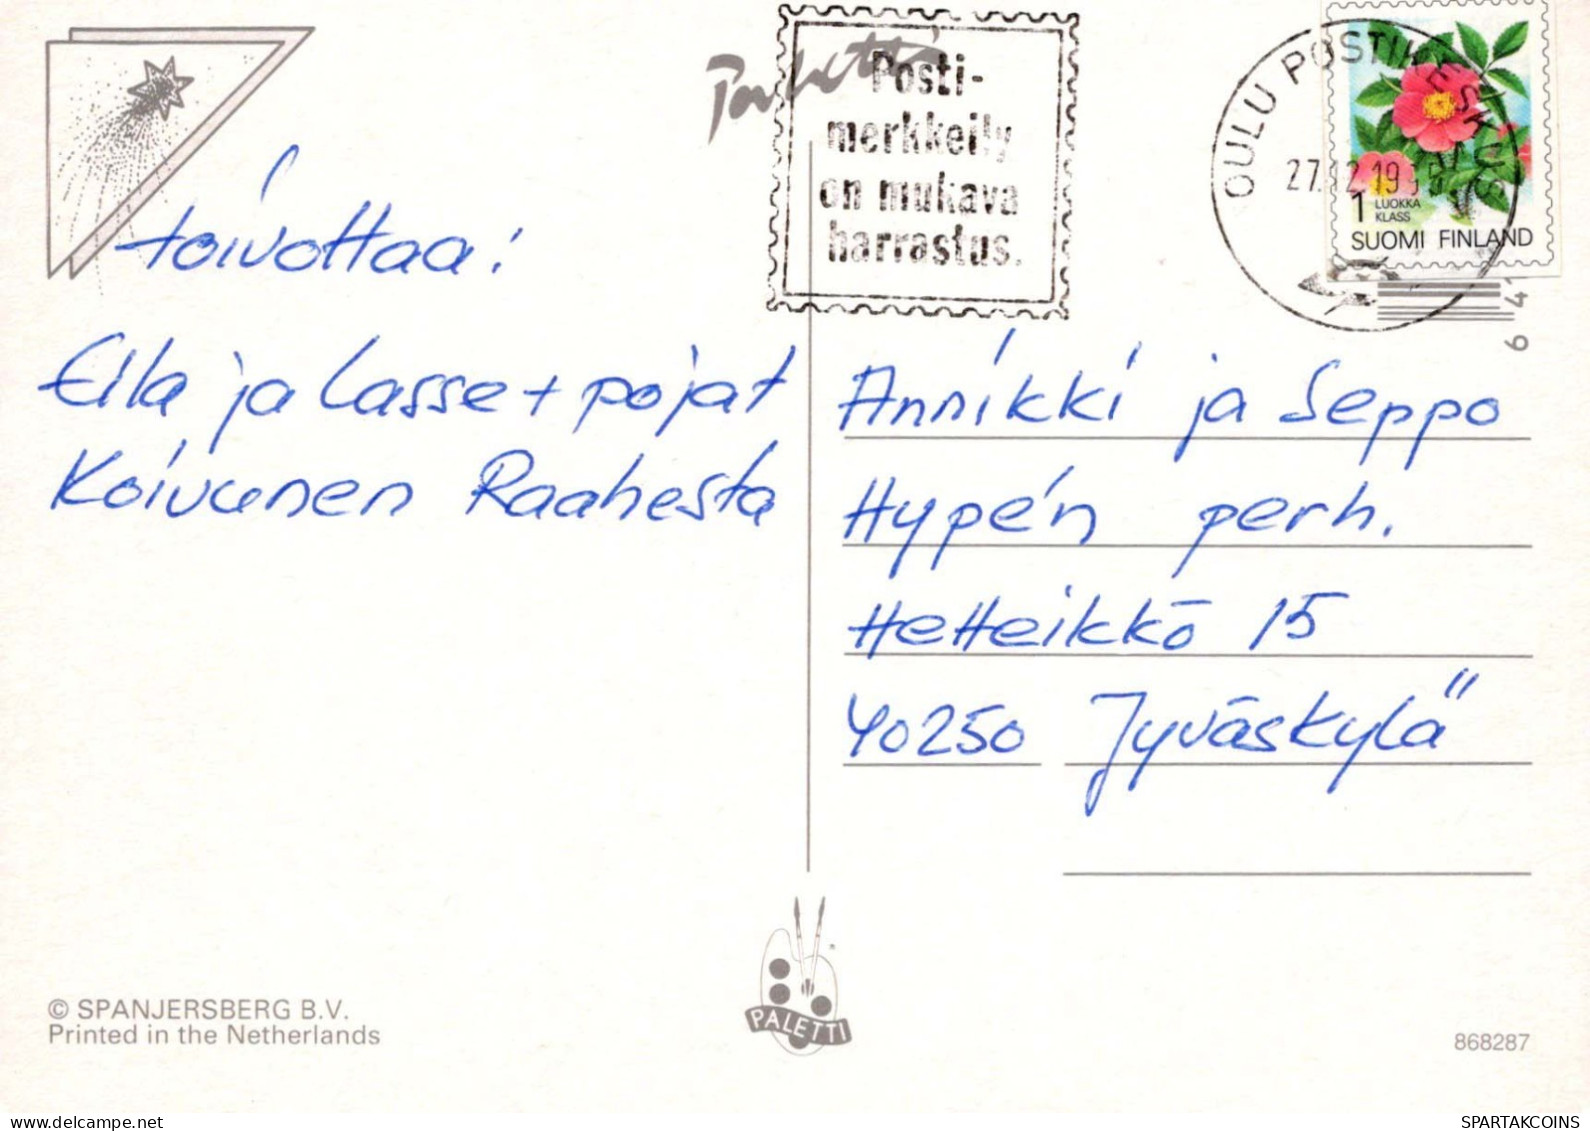 Posti-
merkkeily
on mukava
harrastus.
OULU POSTIKESKUS
1 LUOKKA
KLASS
SUOMI FINLAND
toivottaa:
Eila ja Lasse + pojat
Koivunen Raahesta
Annikki ja Seppo
Hypén perh.
Hetteikkö 15
40250 Jyväskylä
PALETTI
© SPANJERSBERG B.V.
Printed in the Netherlands
868287
SPARTAKCOINS
delcampe.net